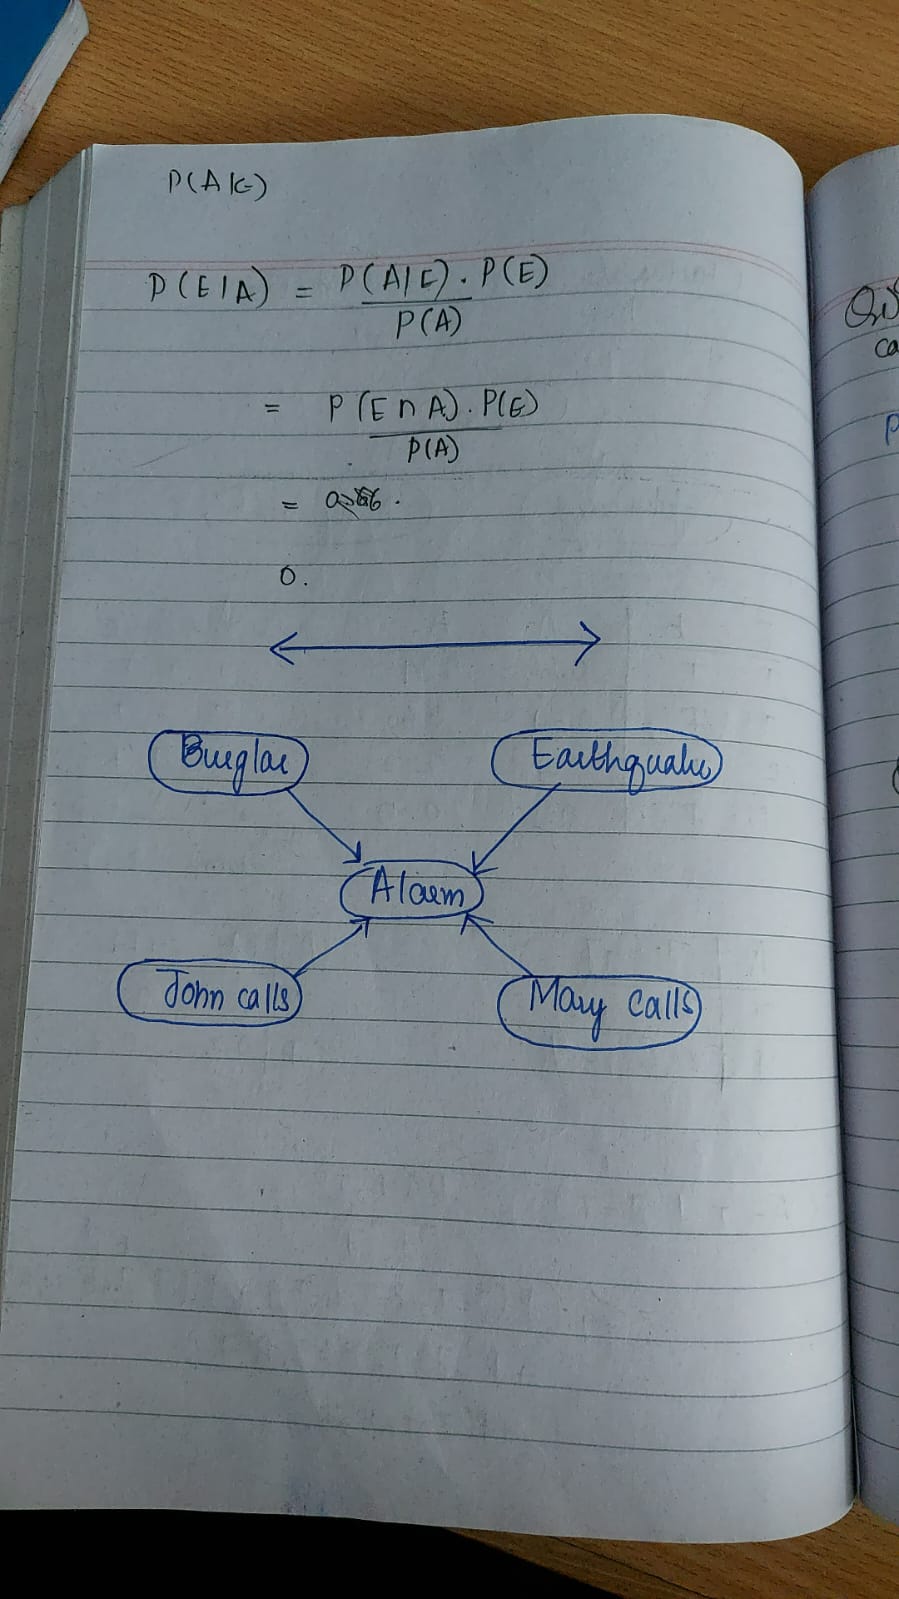 P(A|E)
P(E|A) = P(A|E) . P(E)
P(A)
= P(E ∩ A) . P(E)
P(A)
=
0.
Burglar
Earthquake
Alarm
John calls
Mary calls
ca
P